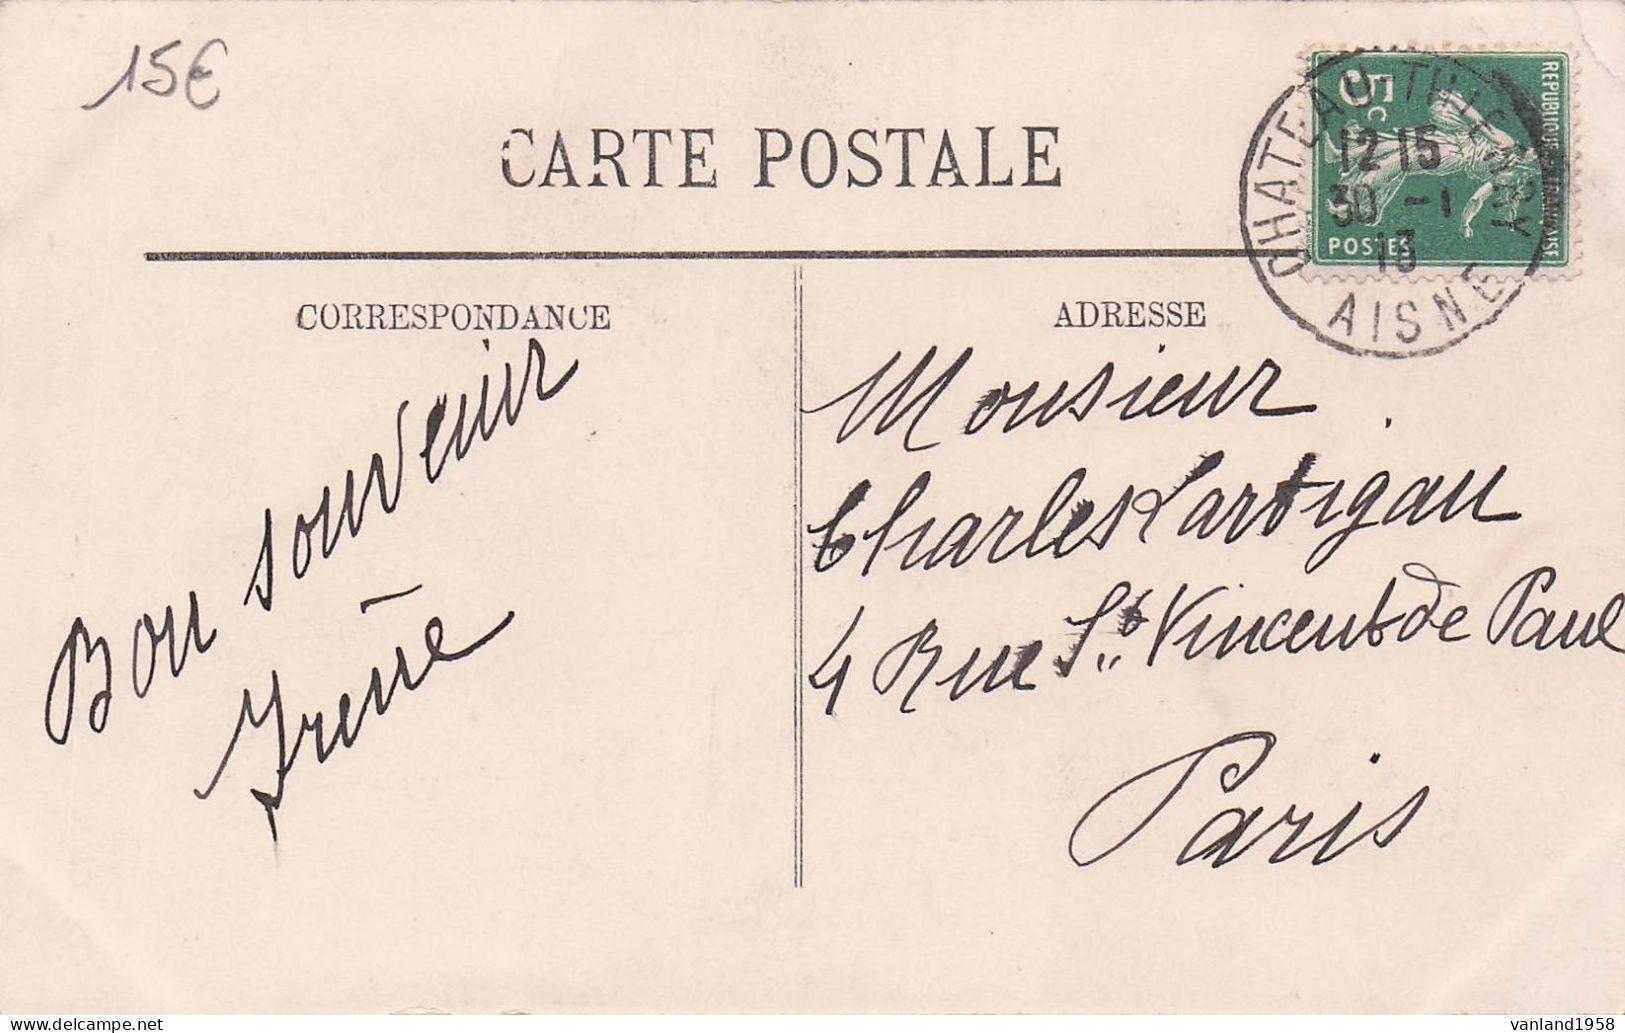 15€
CARTE POSTALE
5c
REPUBLIQUE FRANÇAISE
POSTES
CHATEAU-THIERRY
12 15
30 -1
13
AISNE
CORRESPONDANCE
Bon souvenir
Irène
ADRESSE
Monsieur
Charles Lartigau
4 Rue St Vincent de Paul
Paris
vanland1958